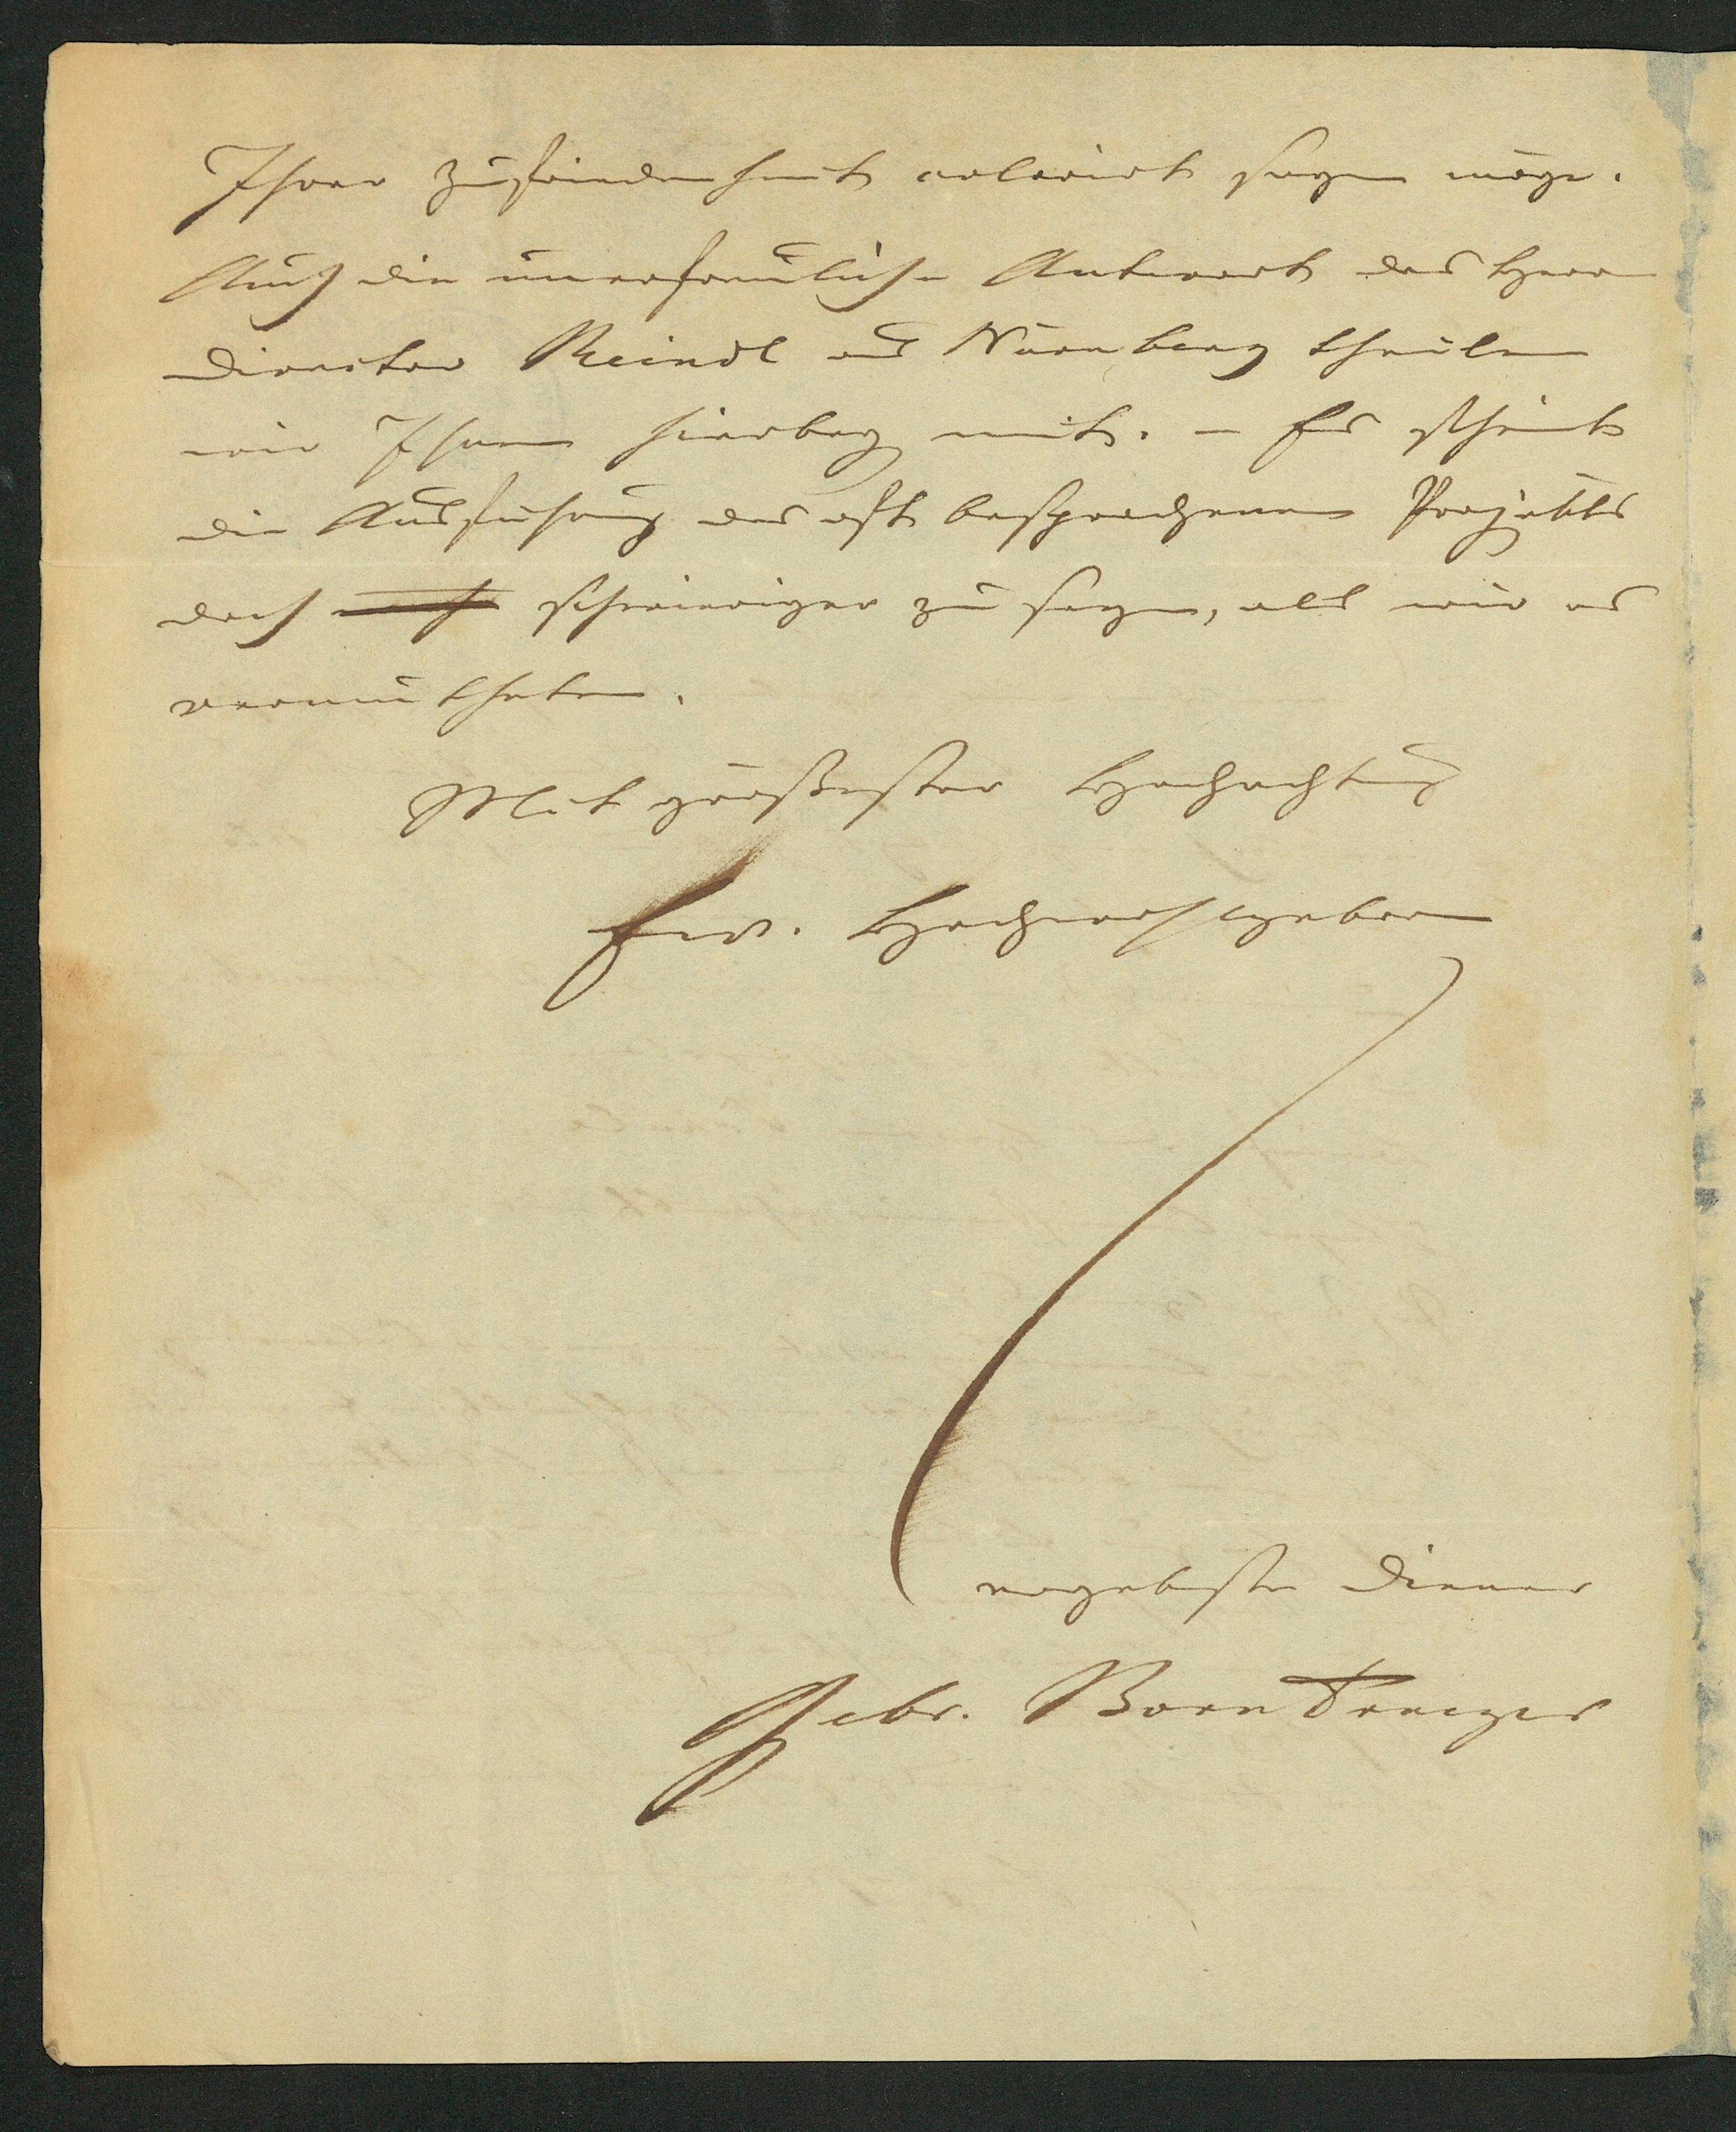 Ihrer Zufriedenheit colorirt seyn möge.
Auch die unerfreuliche Antwort des Herrn
Director Reindl aus Nürnberg theilen
wir Ihnen hierbey mit. – Es scheint
die Ausführung des oft besprochenen Projekts
doch schwieriger zu seyn, als wir es
vermutheten.
Mit größester Hochachtung
Ew. Hochwohlgeboren
ergebenste Diener
Gebr. Borntraeger